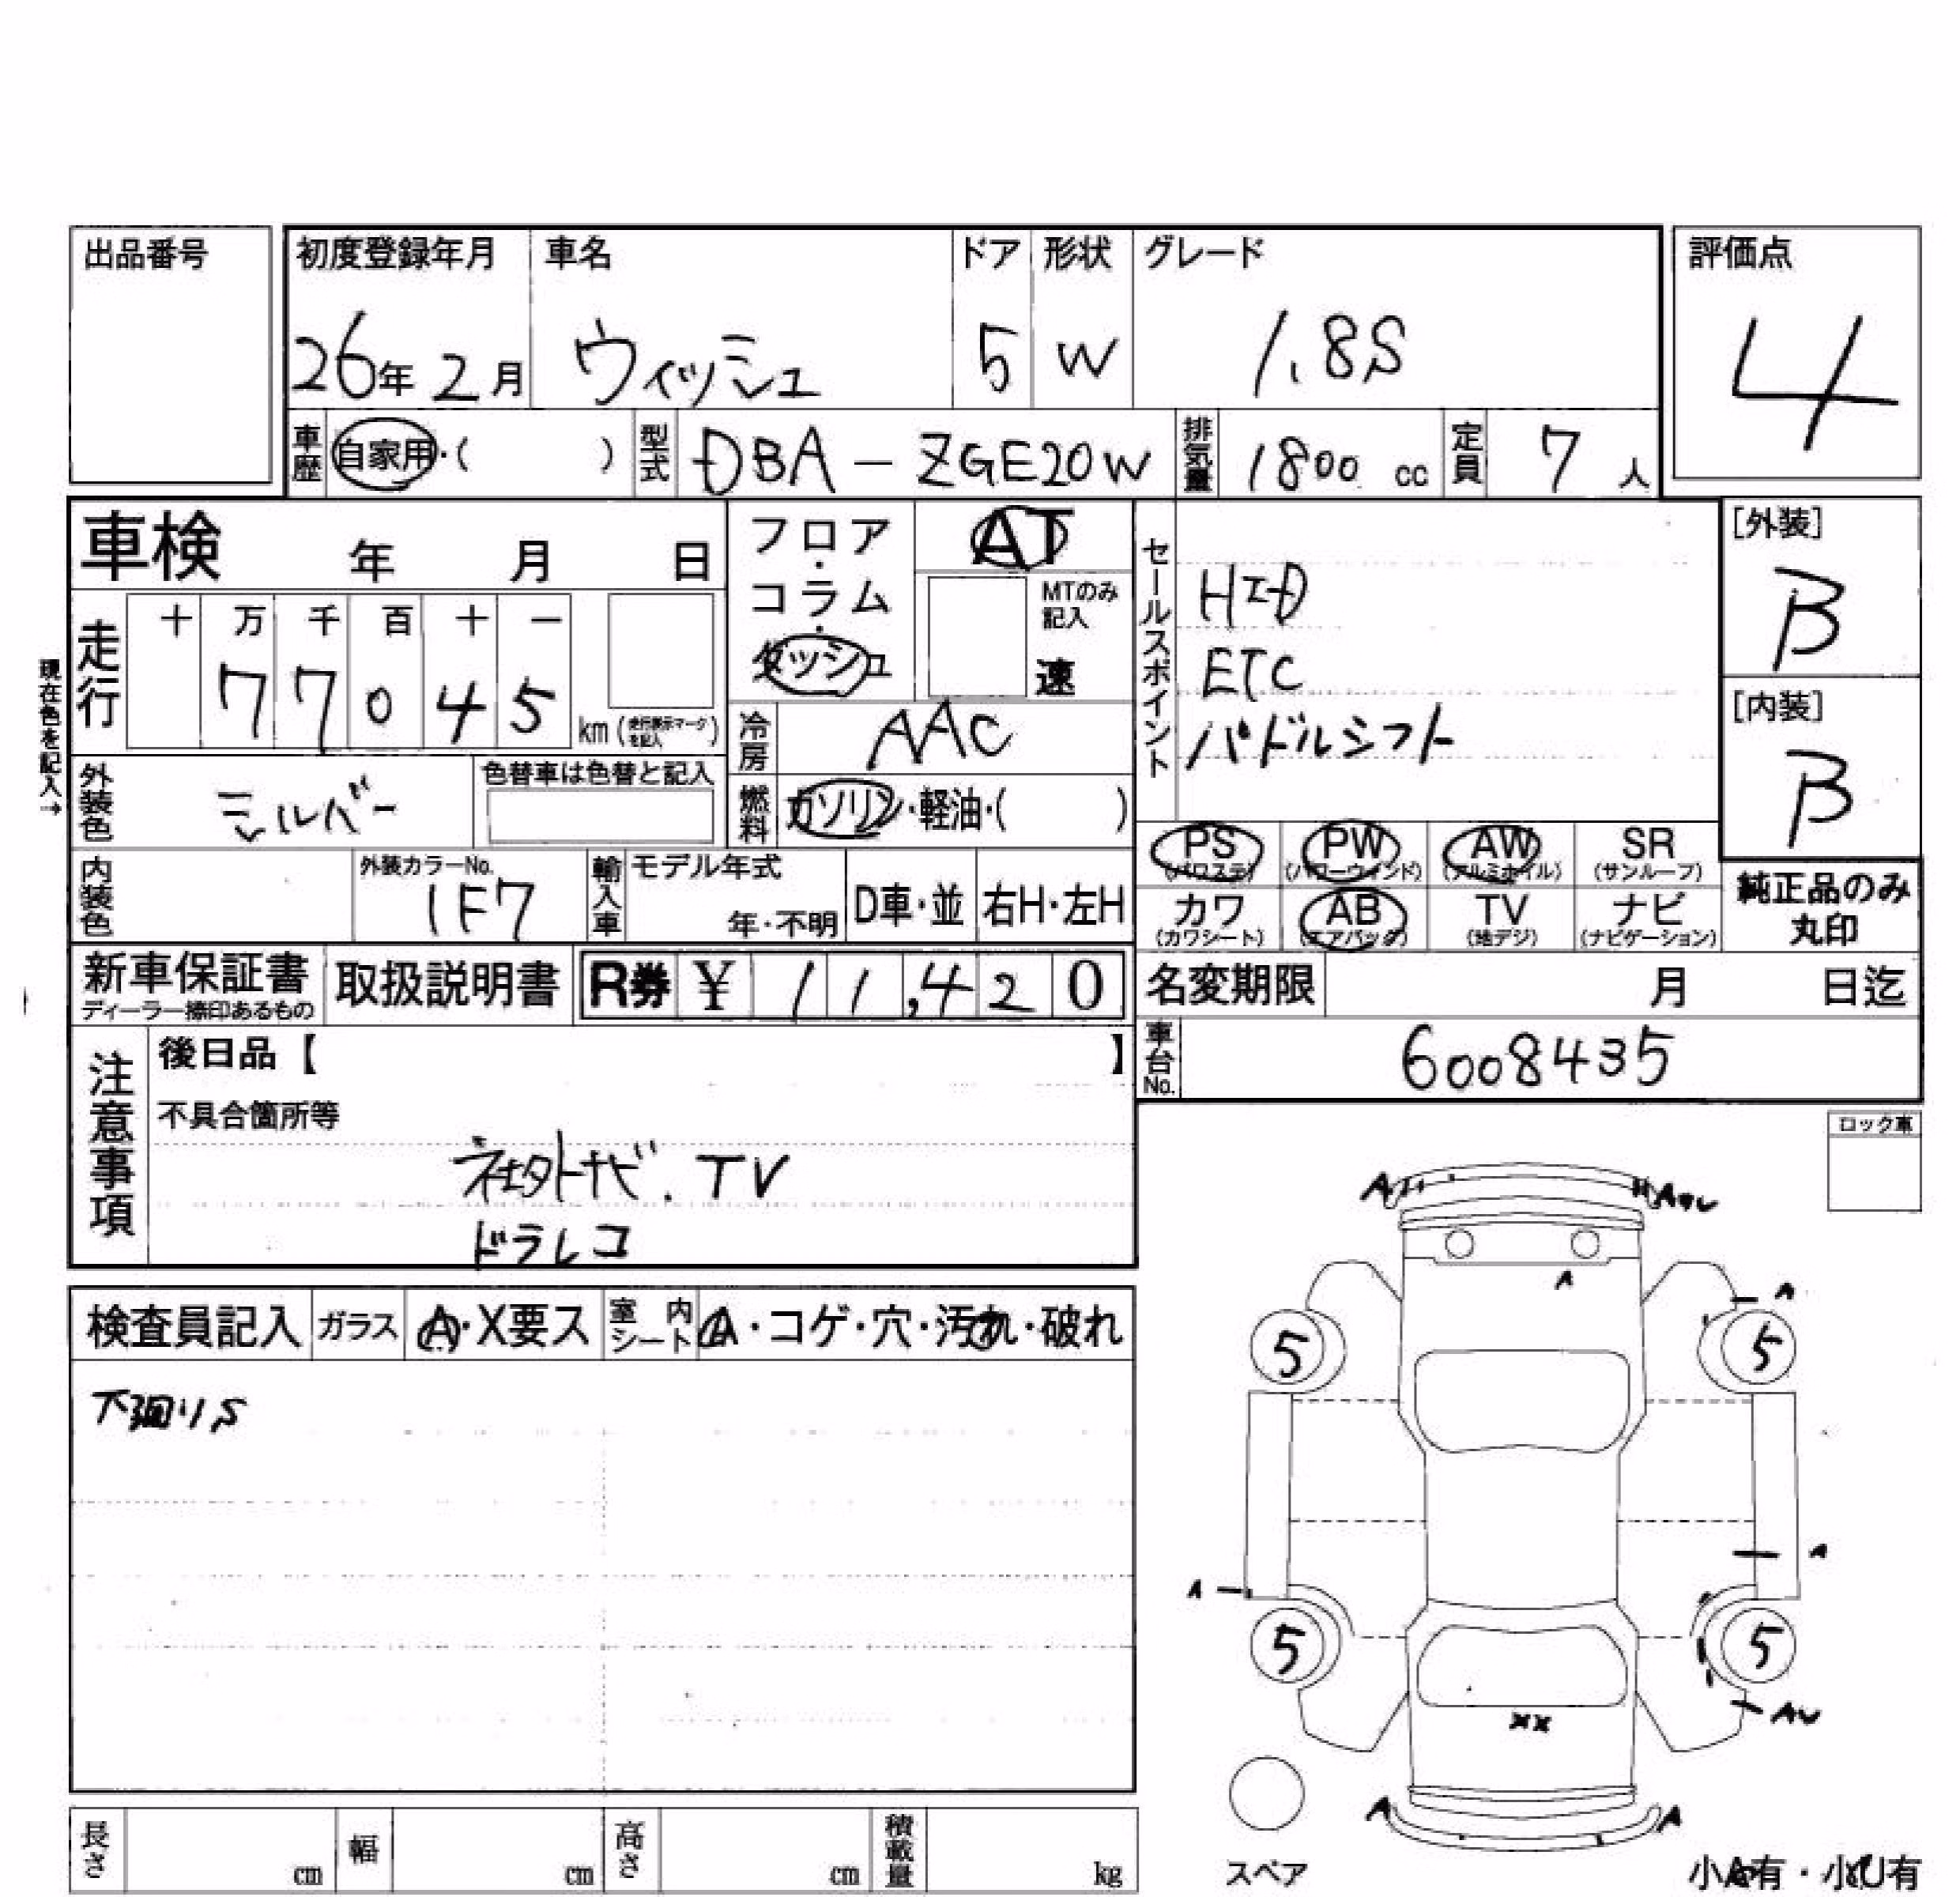 出品番号
初度登録年月 車名 ドア 形状 グレード 評価点
26年 2月 ウィッシュ 5 W 1.8S 4
車歴 自家用・( ) 型式 DBA-ZGE20W 排気量 1800 cc 定員 7 人
車検 年 月 日
フロア・コラム・ダッシュ
AT
MTのみ記入
速
走行 十 万 千 百 十 一
7 7 0 4 5 km (走行表示マークを記入)
現在色を記入→
冷房 AAC
燃料 ガソリン・軽油・( )
セールスポイント
HID
ETC
パドルシフト
[外装]
B
[内装]
B
外装色 シルバー 色替車は色替と記入
PS (パワステ) PW (パワーウィンド) AW (アルミホイル) SR (サンルーフ)
カワ (カワシート) AB (エアバッグ) TV (地デジ) ナビ (ナビゲーション)
純正品のみ
丸印
内装色 外装カラーNo. 1F7 輸入車 モデル年式 年・不明 D車・並 右H・左H
新車保証書 取扱説明書 R券 ¥ 11,420
ディーラー捺印あるもの
名変期限 月 日迄
車台No. 6008435
注意事項
後日品【 】
不具合箇所等
社外ナビ.TV
ドラレコ
ロック車
検査員記入 ガラス A・X要ス 室内シート A・コゲ・穴・汚れ・破れ
下廻りS
A
A
A
5 5
A
A
5 5
AU
XX
A A
スペア
小A有・小U有
長さ cm 幅 cm 高さ cm 積載量 kg